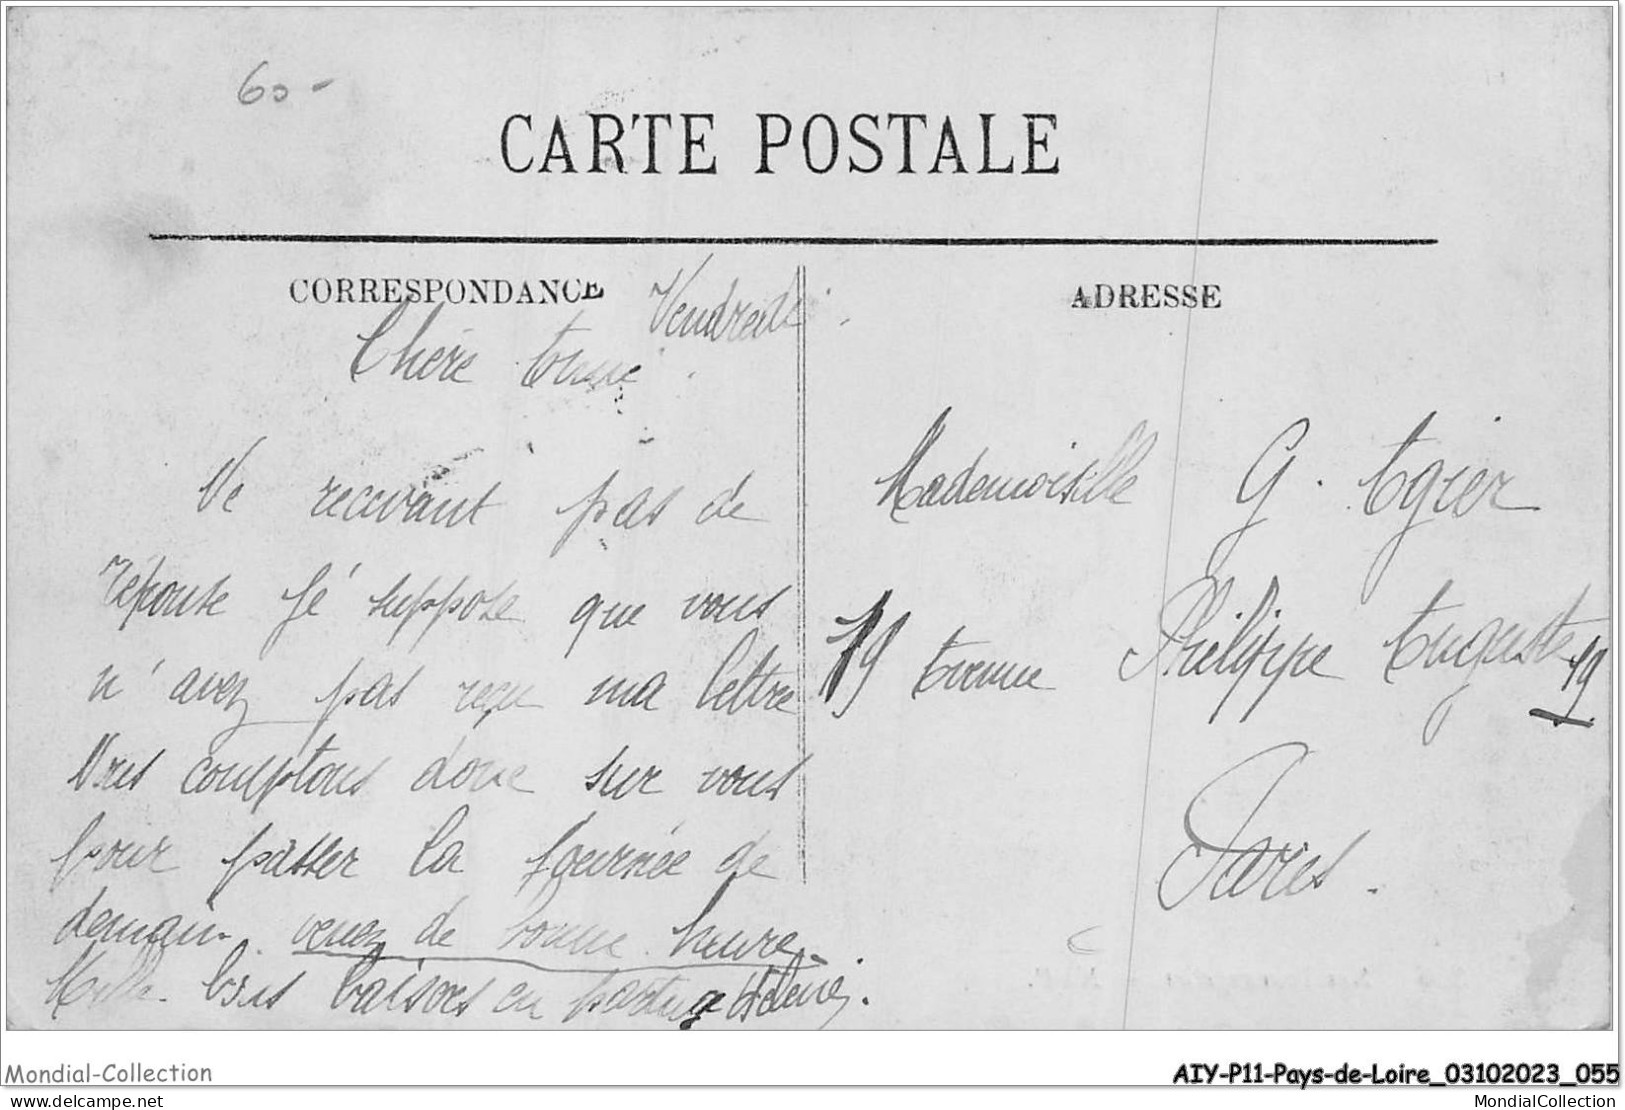 60-
CARTE POSTALE
CORRESPONDANCE
Vendredi.
Chère
Ne recevant pas de
réponse je suppose que vous
n'avez pas reçu ma lettre
Nous comptons donc sur vous
pour passer la journée de
demain. venez de bonne heure.
Mille bons baisers en partage
ADRESSE
Mademoiselle G.
19 Avenue Philippe Auguste 19
Paris.
Mondial-Collection
AIY-P11-Pays-de-Loire_03102023_055
www.delcampe.net
MondialCollection